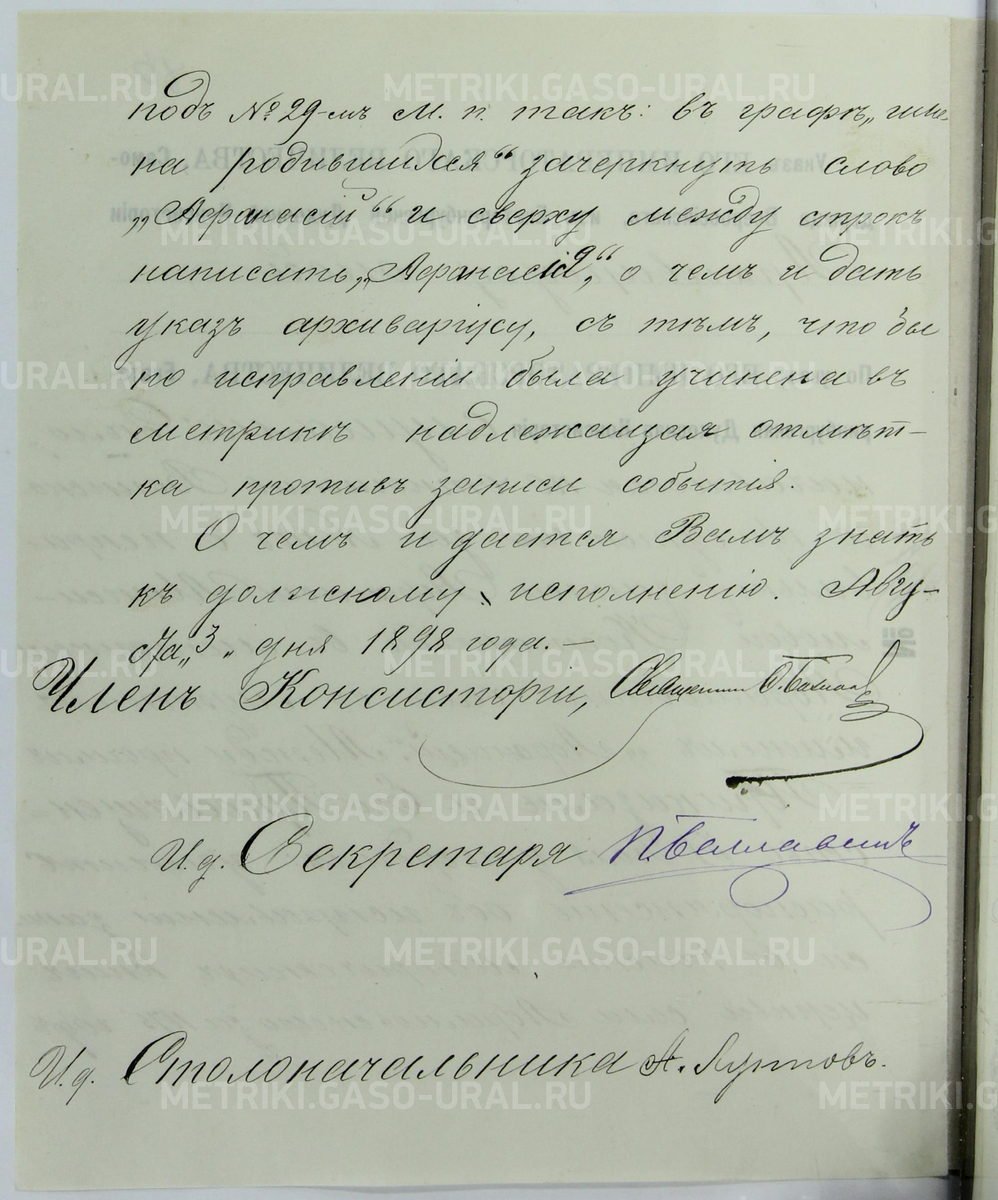 подъ № 29-мъ М. п. такъ: въ графѣ „име-
на родившихся“ зачеркнуть слово
„Афанасій“ и сверху между строкъ
написать „Афанасія“, о чемъ и дать
указъ архиваріусу, съ тѣмъ, что бы
по исправленіи была учинена въ
метрикѣ надлежащая отмѣт-
ка противъ записи событія.
О чемъ и дается Вамъ знать
къ должному исполненію. Авгу-
ста „3“ дня 1898 года.—
Членъ Консисторіи, Священникъ
И.д. Секретаря
И.д. Столоначальника А.
METRIKI.GASO-URAL.RU